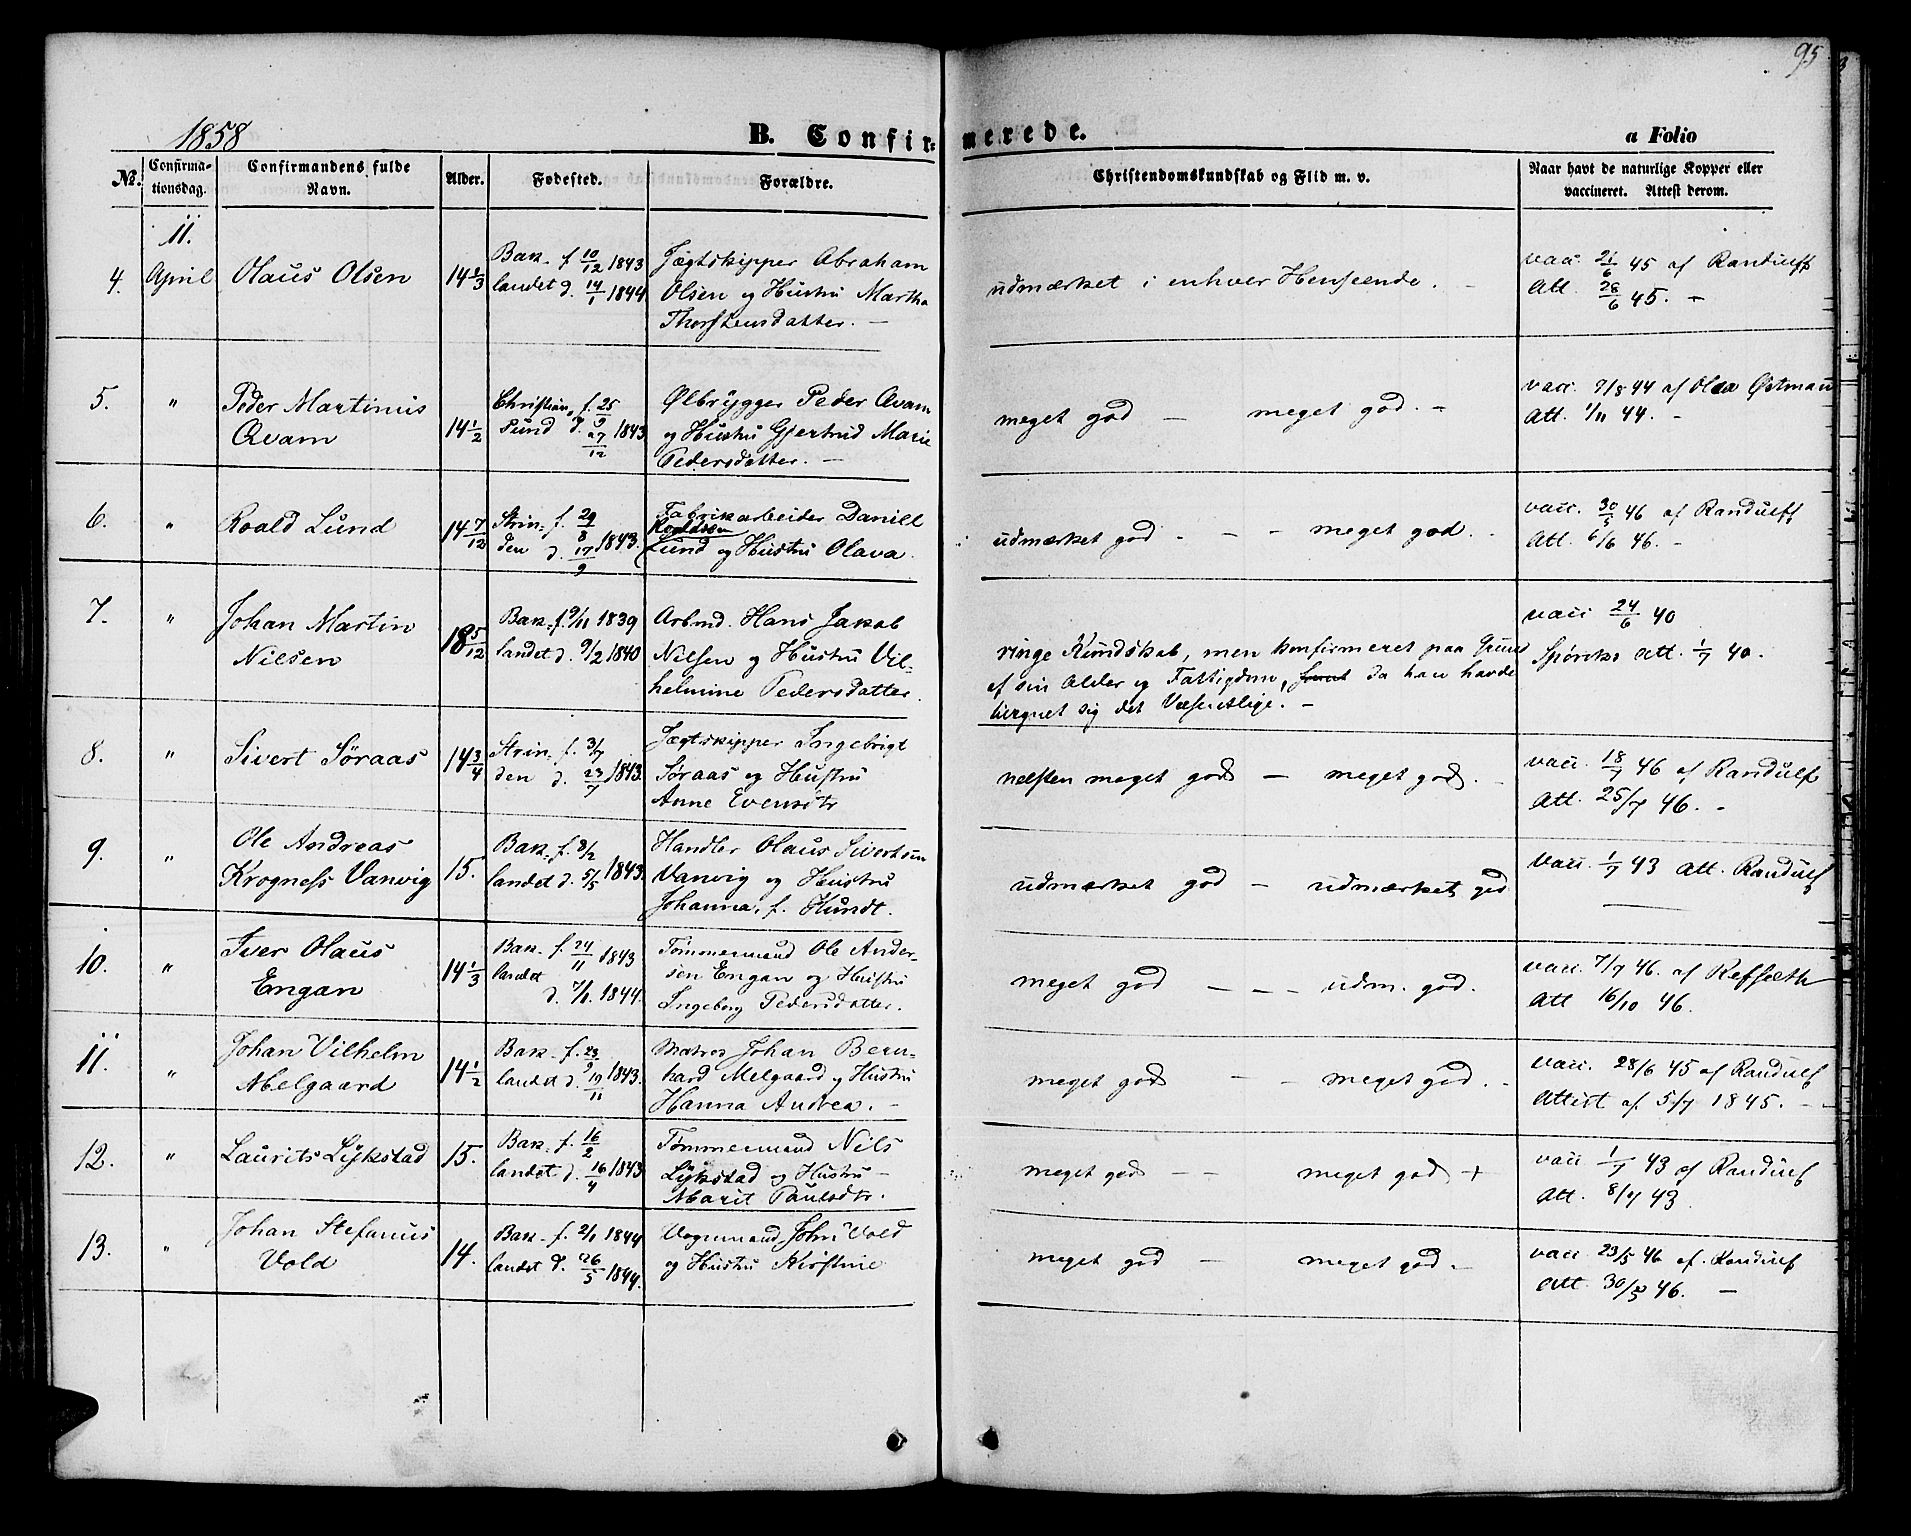 95
1858
B. Confirmerede.
a Folio
No.
Confirmationsdag.
Confirmandens fulde Navn.
Alder.
Fødested.
Forældre.
Christendomskundskab og Flid m. v.
Naar havt de naturlige Kopper eller vaccineret. Attest derom.
11.
4. April Olaus Olsen 14 1/3
Bak- f 10/12 1843
landet d. 14/1 1844
Jægtskipper Abraham
Olsen og Hustru Martha
Thorstensdatter. —
udmærket i enhver Henseende. -
vacc. 21/6 45 af Randulff
Att. 28/6 45. -
5. " Peder Martinus
Qvam 14 1/2
Christian- f. 25/9
sund d. 27/12 1843
Ølbrygger Peder Qvam
og Hustru Gjertrud Marie
Pedersdatter. —
meget god — meget god. -
vacc. 7/8 44 af Olea Østman
Att. 1/11 44. -
6. " Roald Lund 14 7/12
Strin- f. 29/8
den d. 17/9 1843.
Fabrikarbeider Daniel
Roaldsen
Lund og Hustru Olava.
udmærket god - - - meget god.
vacc. 30/5 46 af Randulff
Att. 6/6 46. -
7. " Johan Martin
Nilsen 18 5/12
Bak- f. 9/11 1839
landet d. 9/2 1840
Arbmd. Hans Jakob
Nilsen og Hustru Vil-
helmine Pedersdatter.
ringe Kundskab, men konfirmeret paa Grund
af sin Alder og Fattigdom, da han havde
tilegnet sig det Væsentlige. -
vacc 24/6 40
Att. 1/7 40.
8. " Sivert Søraas 14 3/4
Strin- f. 3/7
den d. 23/7 1843.
Jægtskipper Ingebrigt
Søraas og Hustru
Anne Evensdtr
næsten meget god — meget god.
vacc. 18/7 46 af Randulf
Att. 25/7 46. -
9. " Ole Andreas
Krogness Vanvig 15.
Bak- f. 8/2
landet d. 5/5 1843.
Handler Olaus Sivertsen
Vanvig og Hustru
Johanna, f. Hundt.
udmærket god — udmærket god
vacc. 1/7 43 Att. Randulf
10. " Iver Olaus
Engan 14 1/3
Bak- f. 24/11 1843
landet
d. 7/1. 1844.
Tømmermand Ole Ander-
sen Engan og Hustru
Ingeborg Pedersdatter.
meget god - - - udm. god.
vacc. 7/7 46. af Refsæth
Att 16/10 46.
11. " Johan Vilhelm
Melgaard 14 1/2
Bak- f. 23/9
landet d. 19/11 1843.
Matros Johan Bern-
hard Melgaard og Hustru
Hanna Andrea. -
meget god - - meget god. -
vacc. 28/6 45 af Randulf
Attest af. 5/7 1845. -
12. " Laurits Lykstad 15.
Bak- f. 16/2
landet d. 16/4 1843
Tømmermand Nils
Lykstad og Hustru
Marit Paulsdtr.
meget god - - meget god +
vacc 1/7 43 af Randulf
Att. 8/7 43.
13. " Johan Stefanus
Vold 14.
Bak- f. 2/1 1844
landet d. 26/5 1844.
Vognmand John Vold
og Hustru Kirstine
meget god — meget god. -
vacc. 23/5 46 af. Randulf
Att. 30/5 46. —